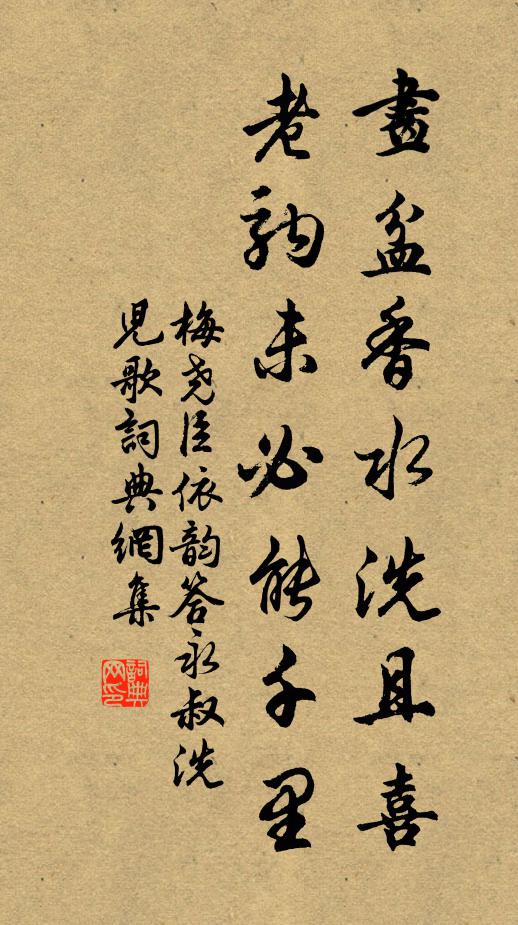 畫盆香水洗且喜
老駒未必能千里
梅堯臣依韵答永叔洗
兒歌詞典網集
詞典网印